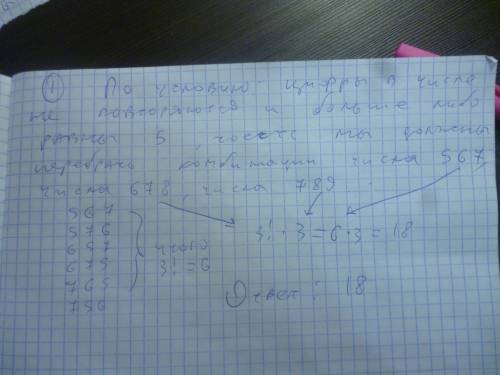 ① По условию цифры в числе
не повторяются и больше либо
равны 5, тоесть мы должны
перебрать комбинации числа 567,
числа 678, числа 789
567
576
657
675
765
756
итого
3! = 6
3! · 3 = 6 · 3 = 18
Ответ: 18